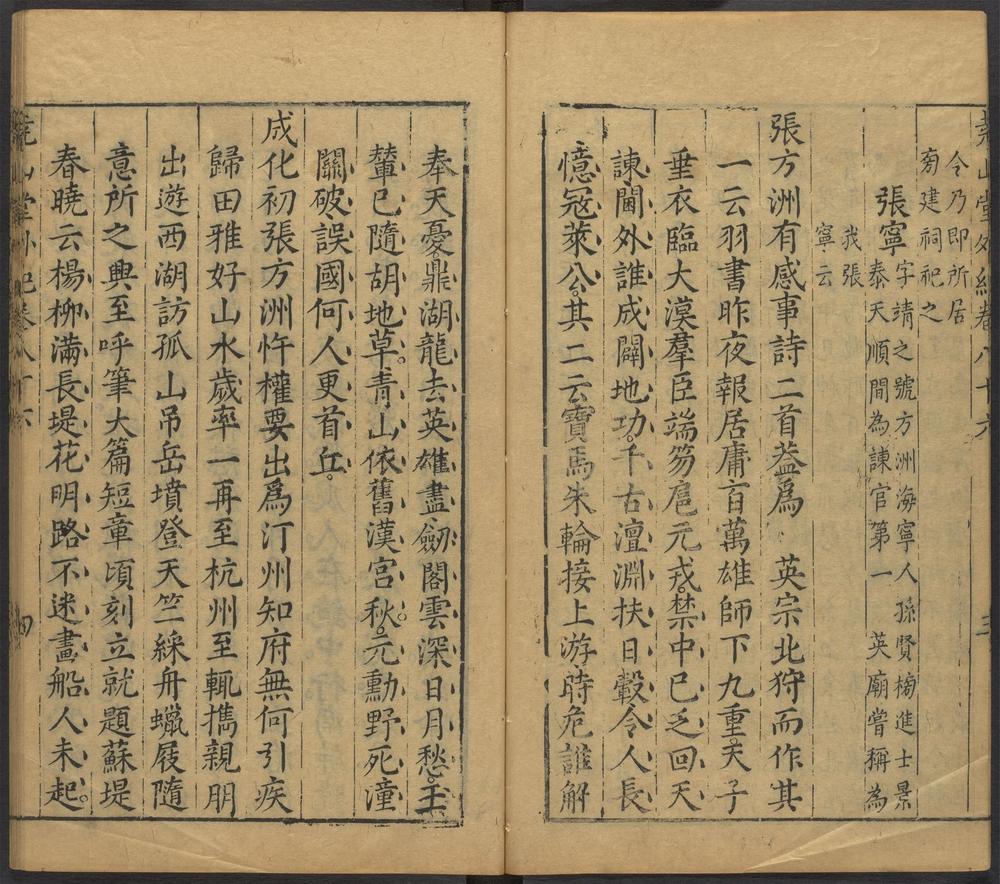 堯山堂外紀卷八十六
三
令乃即所居
旁建祠祀之
張寧
字靖之號方洲海寧人孫賢榜進士景
泰天順間為諫官第一英廟嘗稱為
我張
寧云
張方洲有感事詩二首葢爲 英宗北狩而作其
一云羽書昨夜報居庸百萬雄師下九重天子
垂衣臨大漠羣臣端笏扈元戎禁中已乏回天
諫閫外誰成闢地功千古澶淵扶日轂令人長
憶冦萊公其二云寶馬朱輪接上游時危誰解
奉天憂鼎湖龍去英雄盡劒閣雲深日月愁玉
輦已隨胡地草青山依舊漢宮秋元勳野死潼
關破誤國何人更首丘
成化初張方洲忤權要出爲汀州知府無何引疾
歸田雅好山水歲率一再至杭州至輒攜親朋
出遊西湖訪孤山吊岳墳登天竺綵舟蠟屐隨
意所之興至呼筆大篇短章頃刻立就題蘇堤
春曉云楊柳滿長堤花明路不迷畫船人未起
堯山堂外紀卷八十六
四